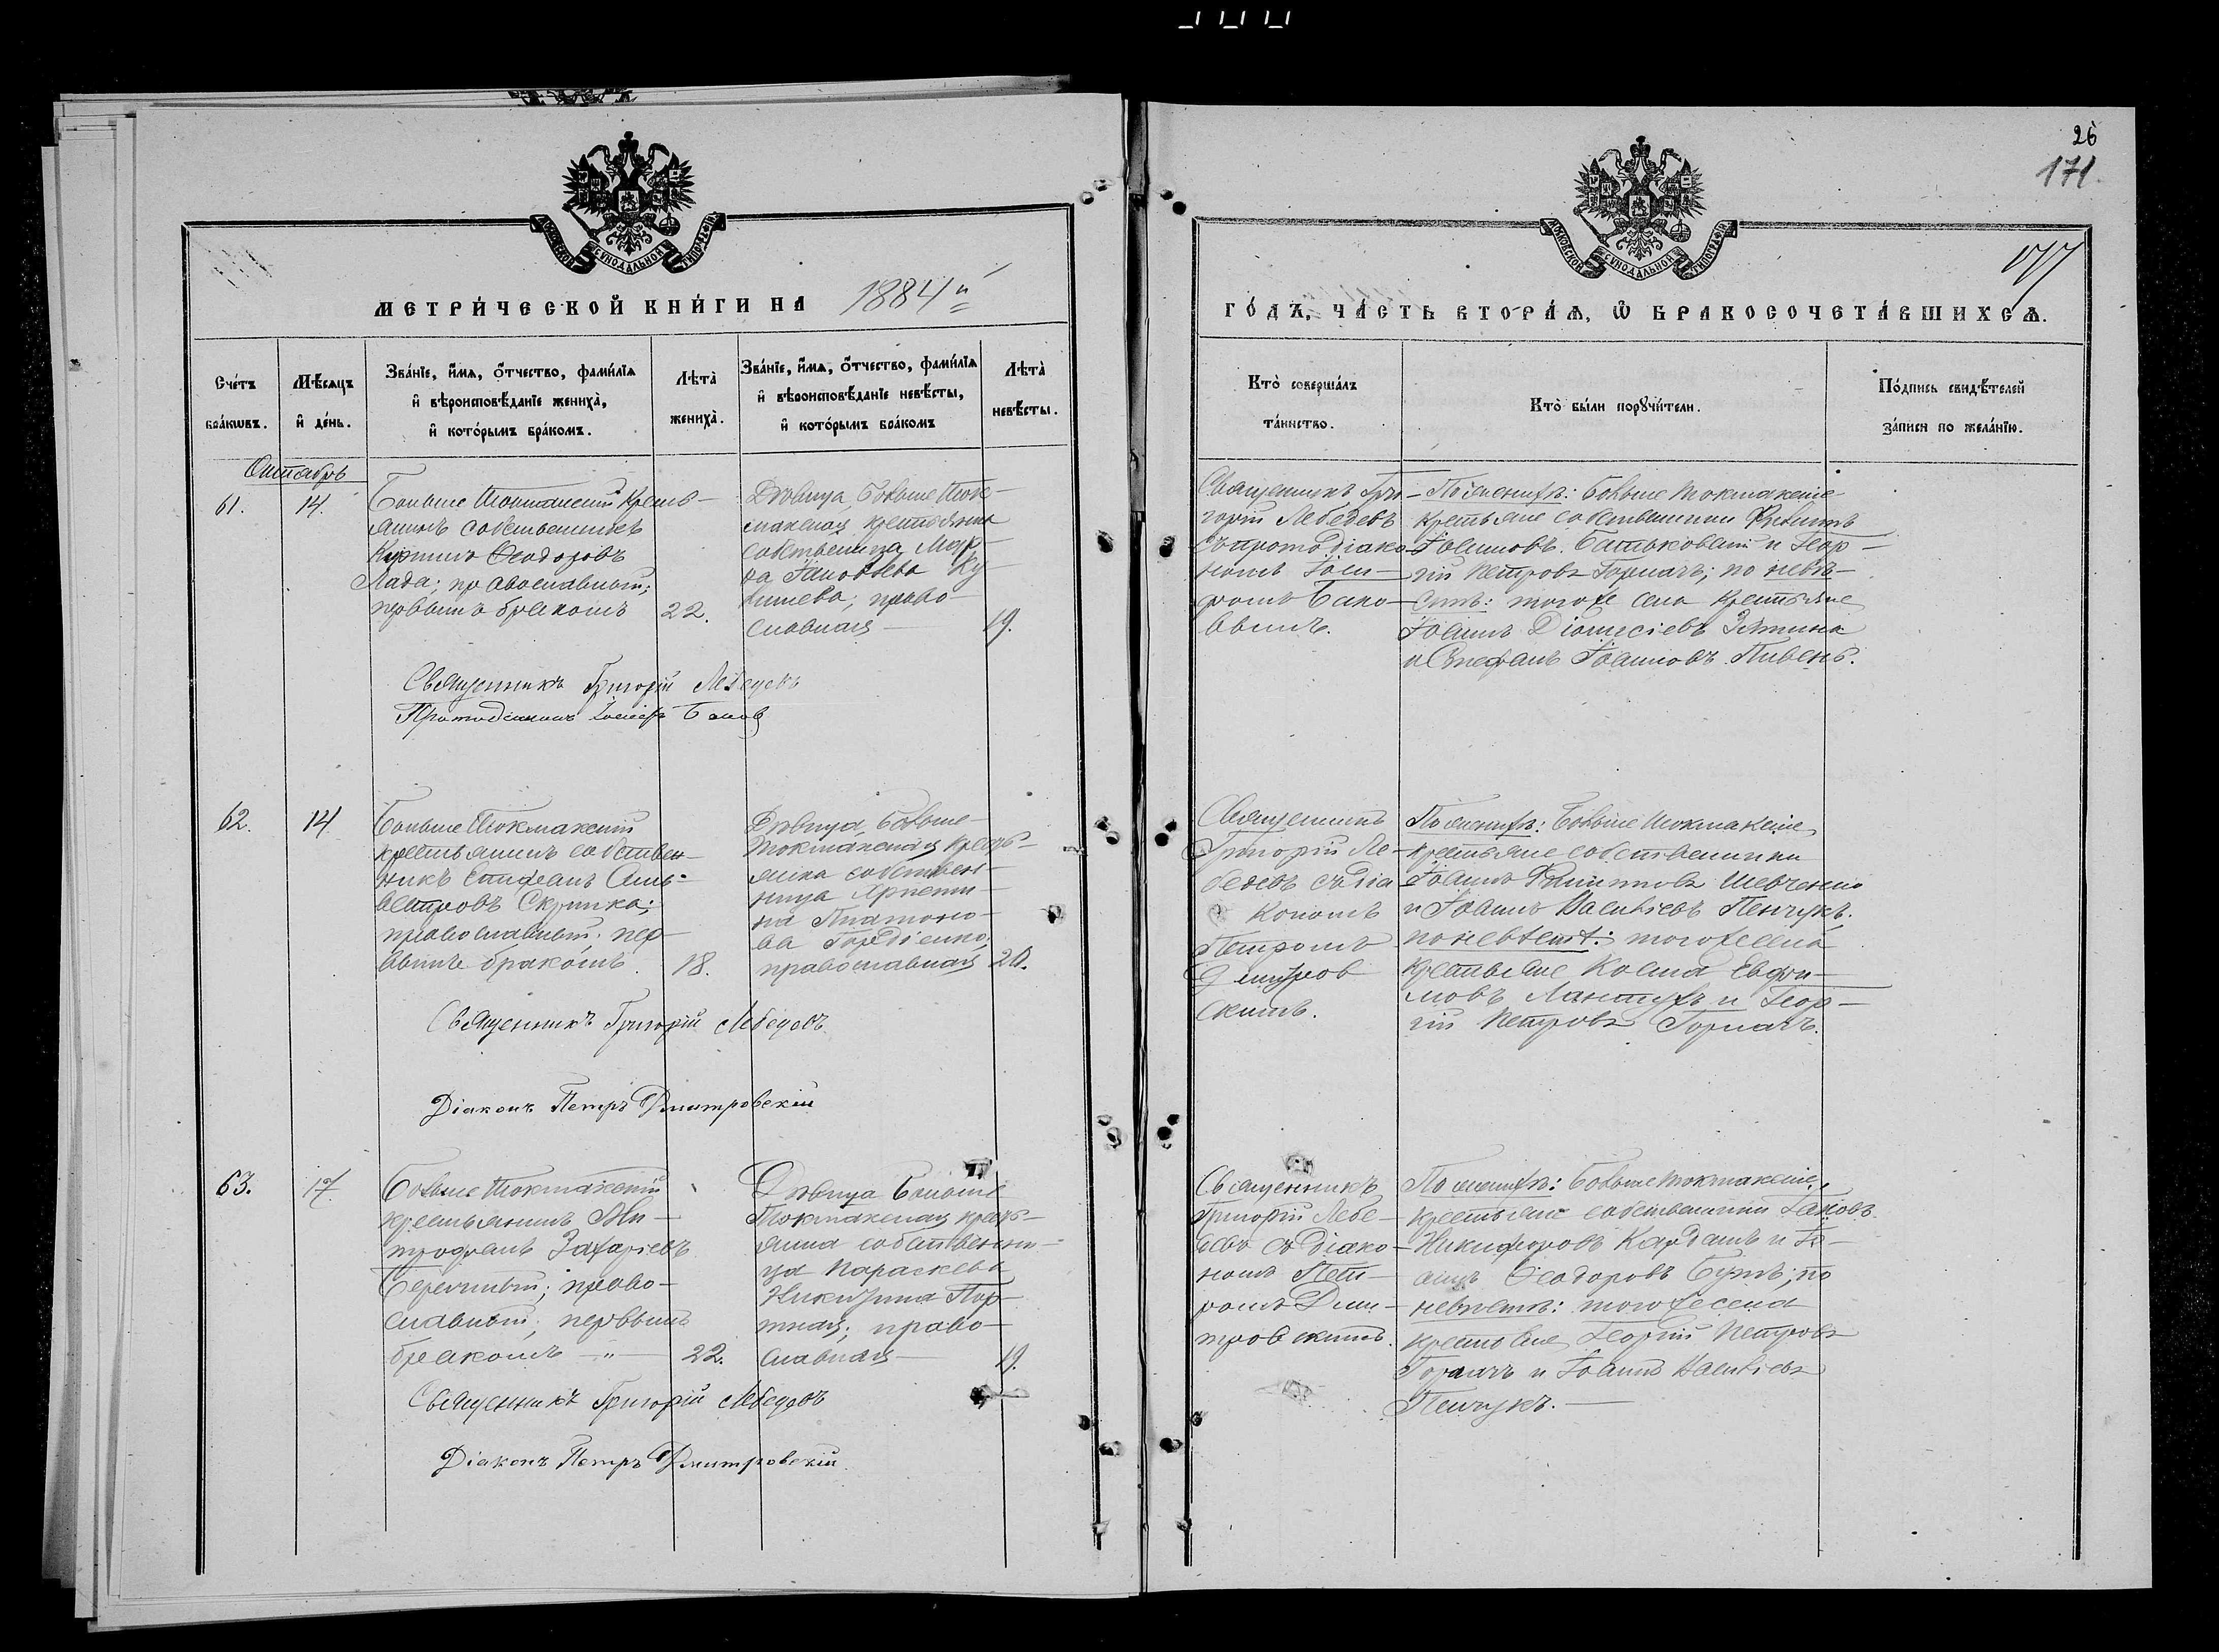 26
171
177
МОСКОВСКОЙ СѴНОДАЛЬНОЙ ТИПОГРАФІИ
МОСКОВСКОЙ СѴНОДАЛЬНОЙ ТИПОГРАФІИ
МЕТРИ́ЧЕСКОЙ КНИ́ГИ НА 1884й
ГО́ДЪ, ЧА́СТЬ ВТОРА́Ѧ, Ѡ҆ БРАКОСОЧЕТА́ВШИХСѦ.
Сче́тъ бра́кѡвъ.
Мѣ́сяцъ и҆ де́нь.
Зва́нїе, и҆́мѧ, ѻ҆́тчество, фами́лїѧ
и҆ вѣроисповѣ́данїе жениха̀,
и҆ кото́рымъ бра́комъ.
Лѣта̀ жениха̀.
Зва́нїе, и҆́мѧ, ѻ҆́тчество, фами́лїѧ
и҆ вѣроисповѣ́данїе невѣ́сты,
и҆ кото́рымъ бра́комъ
Лѣта̀ невѣ́сты.
Кто̀ соверша́лъ
та́инство.
Кто̀ бы́ли порꙋчи́тели.
По́дпись свидѣ́телей
за́писи по жела́нїю.
Октябрь
61.
14.
Больше Токмакскій Кресть-
янинъ собственникъ
Ѳеодоровъ
Лада; православный;
первымъ бракомъ
22.
Дѣвица, Больше Ток-
макская крестьянка
собственница Мар-
ѳа Іаковлева Ку-
православная
19.
Священникъ Гри-
горій Лебедевъ
съ протодіако-
номъ Іоси-
фомъ Бано-
вымъ.
По женихѣ: Больше Токмакскіе
крестьяне собственники Филиппъ
Іоанновъ Батьковскій и Геор-
гій Петровъ Горпачъ; по невѣ-
стѣ: того же села крестьяне
Іоаннъ Діонисіевъ Зятина
и Стефанъ Іоанновъ Пивень.
Священникъ Григорій Лебедевъ
Протодіаконъ Іосифъ Бановъ
62.
14.
Больше Токмакскій
крестьянинъ собствен-
никъ Стефанъ Силь-
вестровъ Скрипка;
православный; пер-
вымъ бракомъ.
18.
Дѣвица, Больше-
Токмакская кресть-
янка собствен-
ница Христи-
на Платоно-
ва Гордіенко;
православная
20.
Священникъ
Григорій Ле-
бедевъ съ діа
кономъ
Петромъ
Дмитров
скимъ.
По женихѣ: Больше Токмакскіе
крестьяне собственники
Іоаннъ Филипповъ Шевченко
и Іоаннъ Васильевъ Пенчукъ;
по невѣстѣ: того же села
крестьяне Косма Евфи-
мовъ Лантухъ и Геор-
гій Петровъ Горпачъ.
Священникъ Григорій Лебедевъ
Діаконъ Петръ Дмитровскій
63.
17.
Больше Токмакскій
крестьянинъ Ми-
трофанъ Захаріевъ
право-
славный; первымъ
бракомъ
22.
Дѣвица Больше
Токмакская кресть-
янка собственни-
ца Параскева
Никитина Пор-
тная; право-
славная
19.
Священникъ
Григорій Лебе-
девъ съ діако-
номъ Пет-
ромъ Дми-
тровскимъ.
По женихѣ: Больше Токмакскіе
крестьяне собственники Іаковъ
Никифоровъ Кардашъ и Іо-
аннъ Ѳеодоровъ Бутъ; по
невѣстѣ: того же села
крестьяне Георгій Петровъ
Горпачъ и Іоаннъ Васильевъ
Пенчукъ.
Священникъ Григорій Лебедевъ
Діаконъ Петръ Дмитровскій